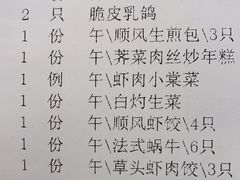 2 只 脆皮乳鸽
1 份 午\顺风生煎包\3只
1 份 午\荠菜肉丝炒年糕
1 例 午\虾肉小棠菜
1 份 午\白灼生菜
1 份 午\顺风虾饺\4只
1 份 午\法式蜗牛\6只
1 份 午\草头虾肉饺\3只